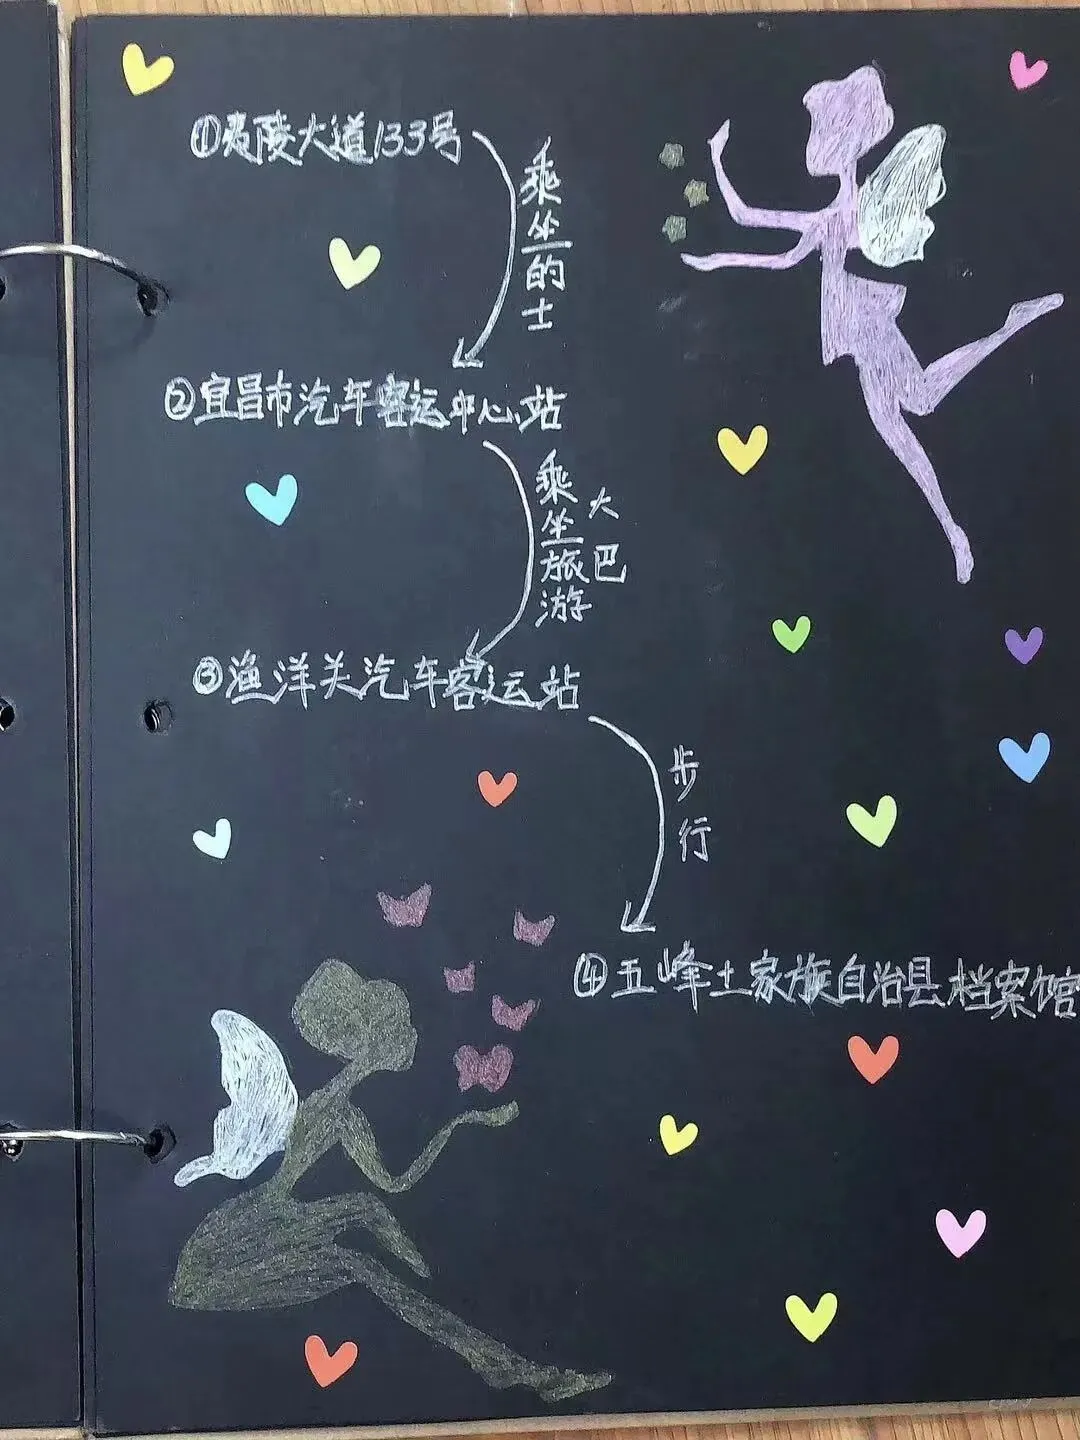 ①夷陵大道133号
乘坐的士
②宜昌市汽车客运中心站
乘坐旅游
大巴
③渔洋关汽车客运站
步行
④五峰土家族自治县档案馆